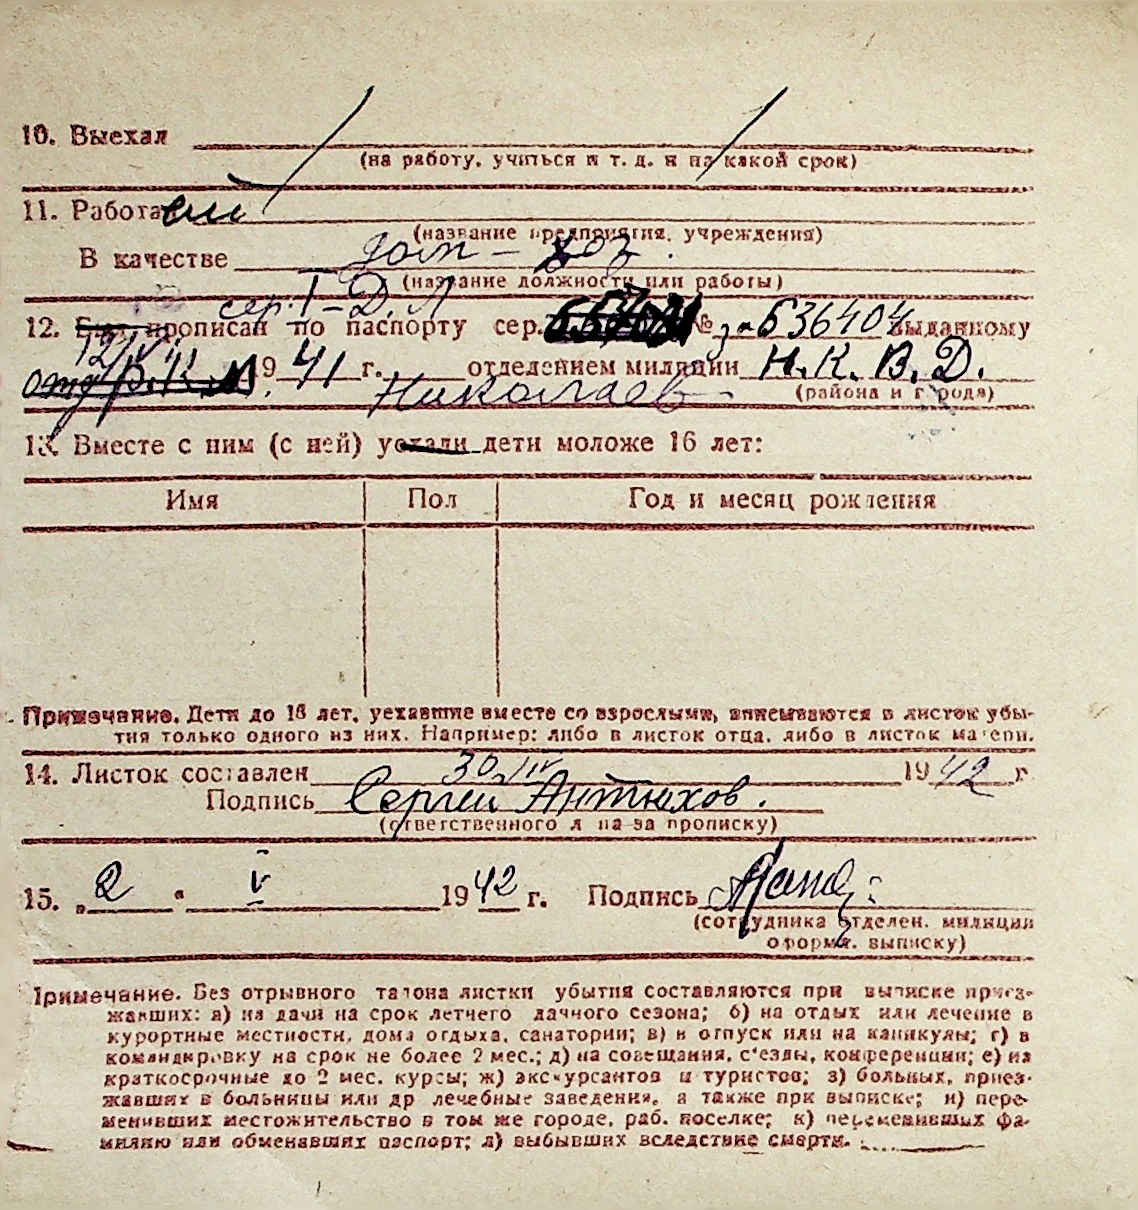 10. Выехал
(на работу, учиться и т. д. и на какой срок)
11. Работа
(название предприятия, учреждения)
В качестве дом-хоз.
(название должности или работы)
сер. I-Д.Л
12. Был прописан по паспорту сер. № за 636404 выданному
1941 г. отделением милиции Н.К.В.Д.
Николаев
(района и города)
13. Вместе с ним (с ней) уехали дети моложе 16 лет:
Имя Пол Год и месяц рождения
Примечание. Дети до 16 лет, уехавшие вместе со взрослыми, вписываются в листок убы-
тия только одного из них. Например: либо в листок отца, либо в листок матери.
14. Листок составлен 30/IV 1942 г.
Подпись Сергей Антюхов.
(ответственного л на за прописку)
15. „2 “ V 1942 г. Подпись
(сотрудника отделен. милиции
оформ. выписку)
Примечание. Без отрывного талона листки убытия составляются при выписке приез-
жавших: а) на дачи на срок летнего дачного сезона; б) на отдых или лечение в
курортные местности, дома отдыха, санатории; в) в отпуск или на каникулы; г) в
командировку на срок не более 2 мес.; д) на совещания, с'езды, конференции; е) на
краткосрочные до 2 мес. курсы; ж) экскурсантов и туристов; з) больных, приез-
жавших в больницы или др лечебные заведения, а также при выписке; и) пере-
менивших местожительство в том же городе, раб. поселке; к) переменивших фа-
милию или обменавших паспорт; л) выбывших вследствие смерти.